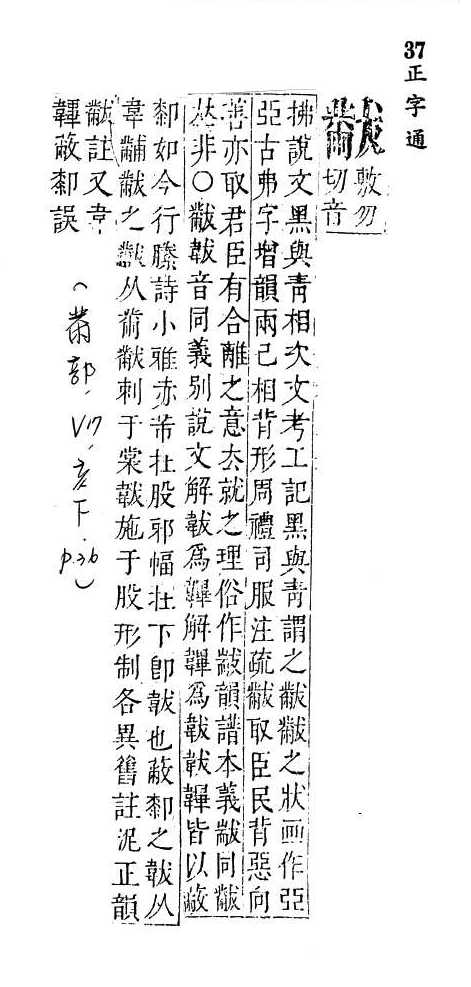 37 正字通
黻 敷勿切音
拂說文黑與靑相次文考工記黑與靑謂之黻黻之狀画作亞
亞古弗字增韻兩己相背形周禮司服注疏黻取臣民背惡向
善亦取君臣有合離之意去就之理俗作黻韻譜本義黻同黻
𠀤非○黻韍音同義別說文解韍爲韠解韠爲韍韍韠皆以蔽
厀如今行縢詩小雅赤芾在股邪幅在下卽韍也蔽厀之韍从
韋黼黻之黻从黹黻刺于裳韍施于股形制各異舊註泥正韻
黻註又韋
韠蔽厀誤
(黹部, V17, 亥下. p.26)